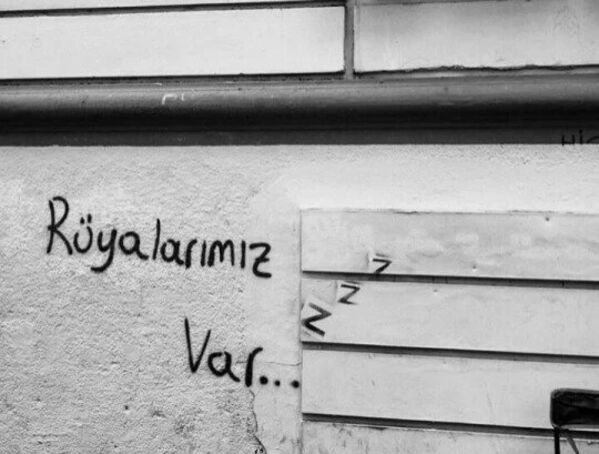 Rüyalarımız
z
z
z
Var...